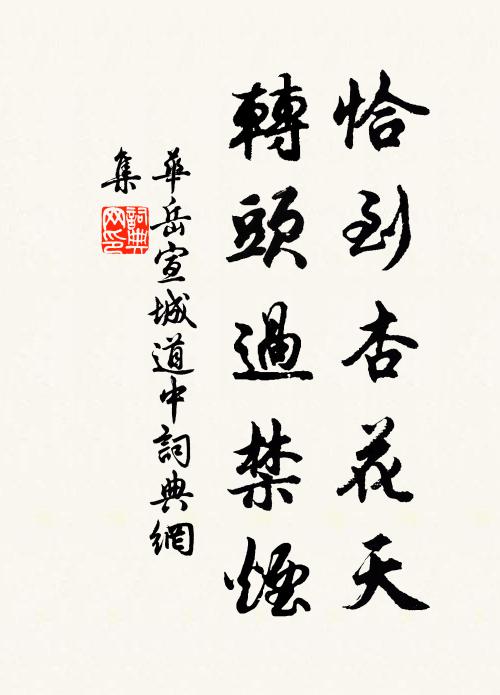 恰到杏花天
轉頭過禁煙
華岳宣城道中詞典網
集
詞典
网印